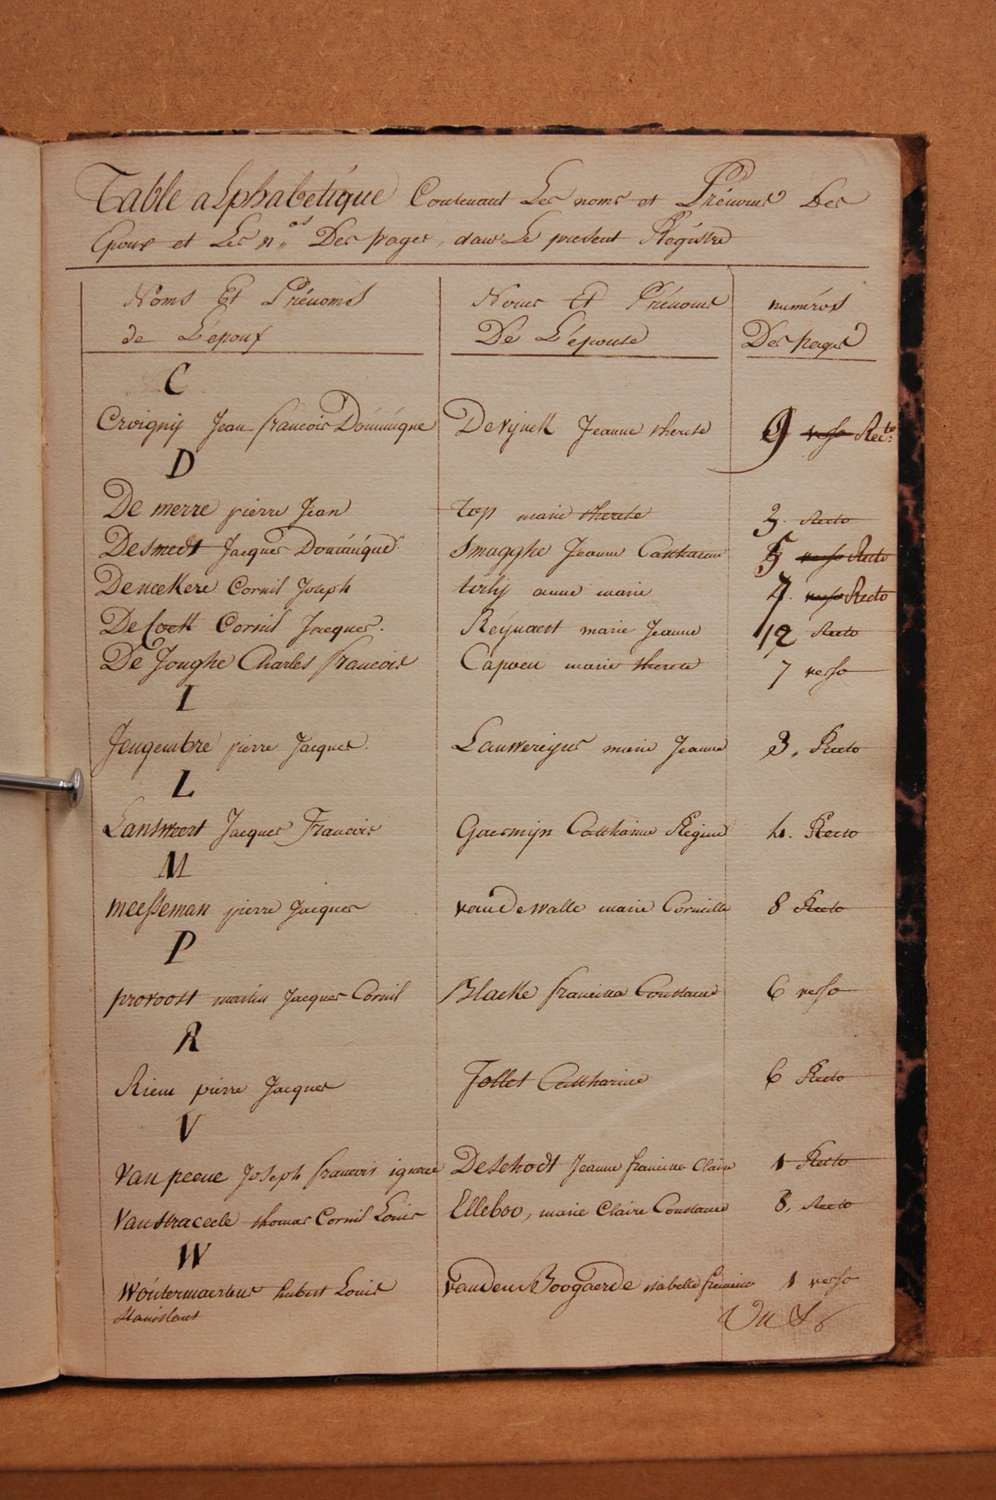 Table alphabetique Contenant Les noms et Prénoms Des
Epoux et Les n.os Des pages, dans Le present Régistre
Noms Et Prénoms de L'epoux
Noms Et Prénoms De L'épouse
numéros Des pages
C
Croigny Jean francois Dominique Devynck Jeanne therese 9 verso Recto
D
De merre pierre Jean top marie therese 3. Recto
Desmedt Jacques Dominique Smagghe Jeanne Catharine 5 verso Recto
Deneckere Cornil Joseph tirly anne marie 7. verso Recto
De Cock Cornil Jacques. Reynaert marie Jeanne 12 Recto
De Jonghe Charles francois Capoen marie therese 7 verso
I
Jengembre pierre Jacques. Lauwereyns marie Jeanne 3. Recto
L
Lansweert Jacques Francois Goermyn Catharine Regine 4. Recto
M
meesseman pierre Jacques vande walle marie Cornille 8 Recto
P
provoost martin Jacques Cornil Blacke francisca Constance 6 verso
R
Riem pierre Jacques Follet Catharine 6 Recto
V
van peene Joseph francois ignace Deschodt Jeanne francine Claire 1 Recto
Vanstraceele thomas Cornil Louis Elleboo, marie Claire Constance 8. Recto
W
Woutermaertens hubert Louis vanden Boogaerde isabelle francine 1 verso
Stanislaus